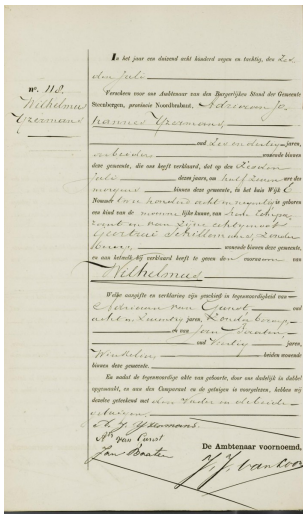 In het jaar een duizend acht honderd negen en tachtig, den
den Juli
Verscheen voor ons Ambtenaar van den Burgerlijken Stand der Gemeente
Steenbergen, provincie Noordbrabant, Adrianus Jo-
hannes IJzermans,
oud Zes en dertig jaren,
arbeider wonende binnen
deze gemeente, die ons heeft verklaard, dat op den
Juli dezes jaars, om half zeven ure des
morgens binnen deze gemeente, in het huis Wijk E
Nommer honderd acht en negentig is geboren
een kind van de kunne, van hem Compa-
rant en van zijne echtgenoot
Schillemans, zonder
beroep, wonende binnen deze gemeente,
en aan hetwelk hij verklaard heeft te geven den voornaam van
Wilhelmus
Welke aangifte en verklaring zijn geschied in tegenwoordigheid van
Adriaan van Cunst oud
acht en twintig jaren, Zonder beroep
en van Jan Baaten
oud Veertig jaren,
Winkelier beiden wonende
binnen deze gemeente.
En nadat de tegenwoordige akte van geboorte, door ons dadelijk in dubbel
opgemaakt, en aan den Comparant en de getuigen is voorgelezen, hebben wij
dezelve geteekend met den Vader en de beide
getuigen.
IJzermans
van Cunst
Jan Baaten
De Ambtenaar voornoemd,
J. J. van Loon
N°. 118.
Wilhelmus
IJzermans